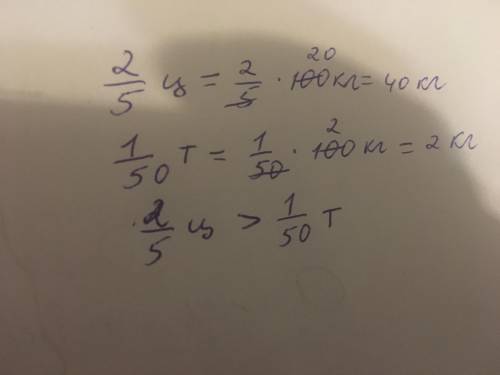 2/5 ц = 2/5 · 100 кг = 40 кг 20
1/50 т = 1/50 · 100 кг = 2 кг 2
2/5 ц > 1/50 т